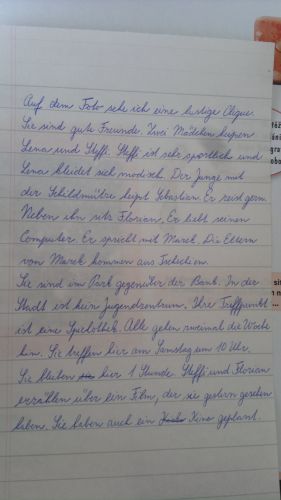 Auf dem Foto sehe ich eine lustige Clique.
Sie sind gute Freunde. Zwei Mädchen heißen
Lena und Steffi. Steffi ist sehr sportlich und
Lena kleidet sich modisch. Der Junge mit
der Schildmütze heißt Sebastian. Er reist gern.
Neben ihn sitz Florian. Er liebt seinen
Computer. Er spricht mit Marek. Die Eltern
von Marek kommen aus Tschechien.
Sie sind im Park gegenüber der Bank. In der
Stadt ist kein Jugendzentrum. Ihre Treffpunkt
ist eine Spielothek. Alle gehen zweimal die Woche
hin. Sie treffen hier am Samstag um 10 Uhr.
Sie bleiben hier 1 Stunde. Steffi und Florian
erzählen über ein Film, der sie gestern gesehen
haben. Sie haben auch ein Kino geplant.